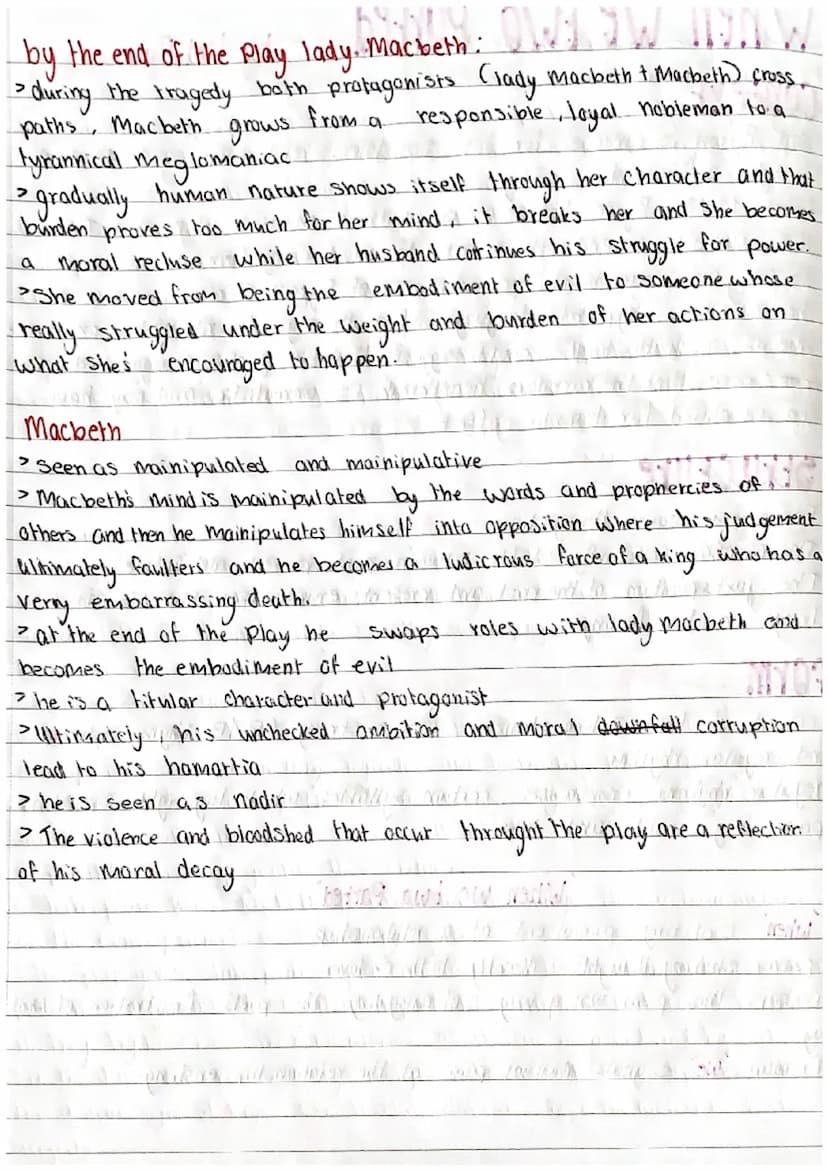 by the end of the play lady Macbeth:
> during the tragedy both protagonists (lady Macbeth + Macbeth) cross
paths, Macbeth grows from a responsible, loyal nobleman to a
tyrannical meglomaniac
> gradually human nature shows itself through her character and that
burden proves too much for her mind, it breaks her and she becomes
a moral recluse while her husband cotinues his struggle for power.
> She moved from being the embodiment of evil to someone whose
really struggled under the weight and burden of her actions on
what she's encouraged to happen.
Macbeth
> seen as mainipulated and mainipulative
> Macbeth's mind is mainipulated by the words and prophercies of
others and then he mainipulates himself into opposition where his judgement
ultimately faulters and he becomes a ludicrous farce of a king who has a
very embarrassing death.
> at the end of the play he swaps roles with lady macbeth and
becomes the embodiment of evil
> he is a titular character and protagonist
> Ultimately, his unchecked ambition and moral downfall corruption
lead to his hamartia
> he is seen as nadir
> The violence and bloodshed that occur throught the play are a reflection
of his moral decay
When we two Parted